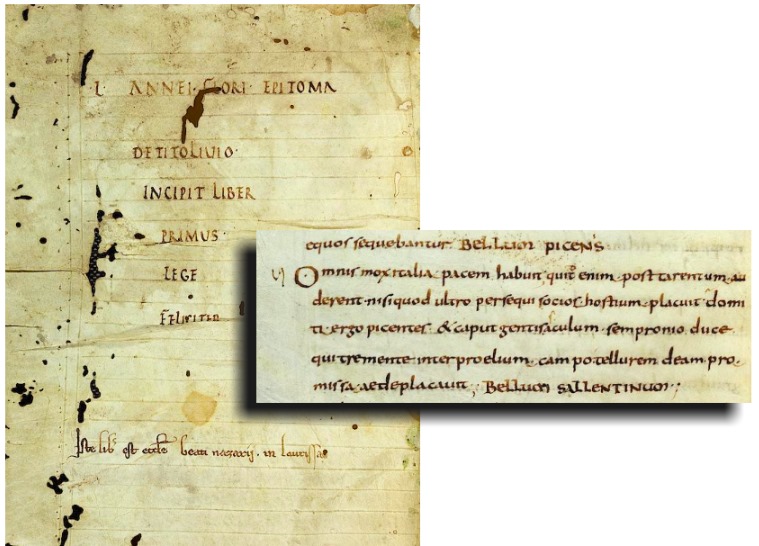 L ANNEI FLORI EPITOMA
DE TITO LIVIO
INCIPIT LIBER
PRIMUS
LEGE
FELICITER
Iste lib est eccle beati nazarij in laurissa
equos sequebantur BELLUM PICENS
VI Omnis mox italia pacem habuit quis enim post tarentum au
derent nisi quod ultro persequi socios hostium placuit domi
ti ergo picentes & caput gentis asculum sempronio duce
qui tremente inter proelium campo tellurem deam pro
missa aede placavit ; BELLUM SALLENTINUM ;